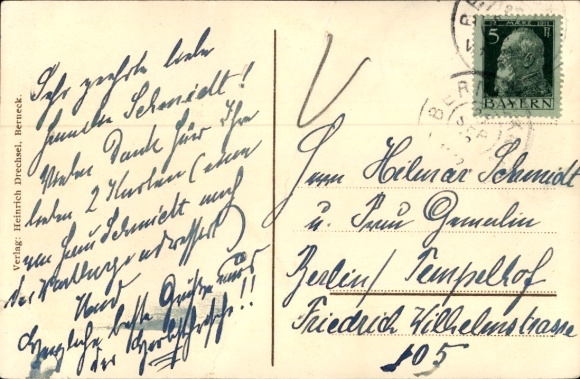 Sehr geehrte liebe
Familie Schmidt!
Vielen Dank für Ihre
lieben 2 Karten (eine
von Frau Schmidt nach
der
Und
Herzliche beste Grüße
der
Verlag: Heinrich Drechsel, Berneck.
5 Pf
BAYERN
Herrn Hilmar Schmidt
u. Frau Gemalin
Berlin/ Tempelhof
Friedrich Wilhelmstrasse
105